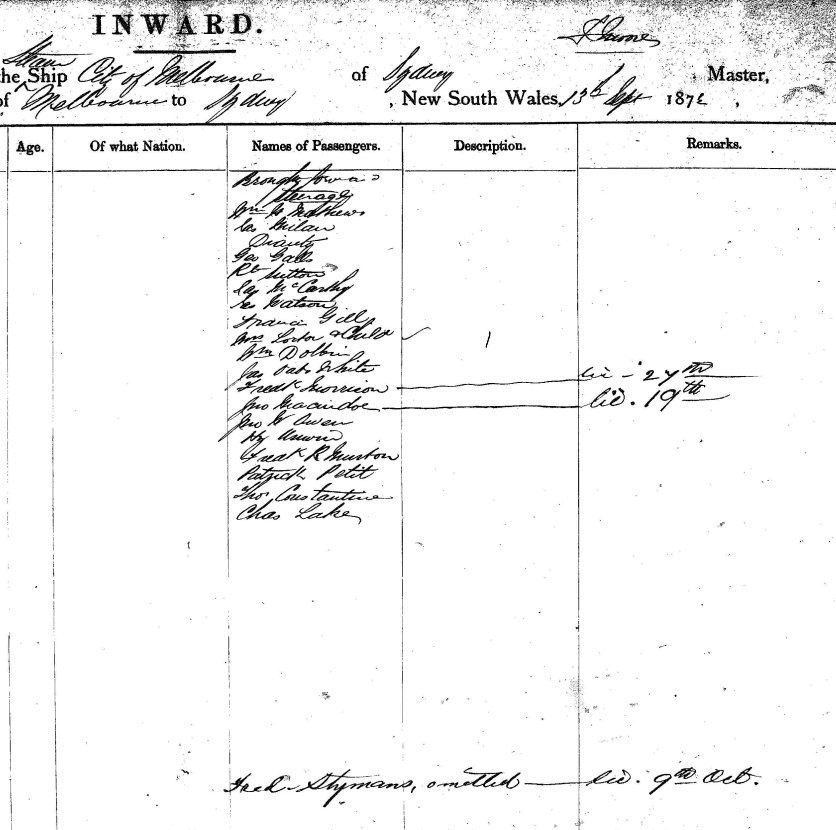 INWARD.
Steam
the Ship City of Melbourne of Sydney Master,
of Melbourne to Sydney, New South Wales, 13th Sept 1872,
Age. Of what Nation. Names of Passengers. Description. Remarks.
Brought
Steerage
Wm Mathews
Geo
Rt Sutton
Jas McCarthy
Geo Watson
Francis Gill
Mrs & Child 1
Wm Dolbin
Jas White lic - 27th
Fredk Morrison
Jno Macindoe lic. 19th
Jno W Owen
Hy Unwin
Fredk R Murton
Patrick Petit
Thos Constantine
Chas Lake
Fred Stymans, omitted lic. 9th Oct.